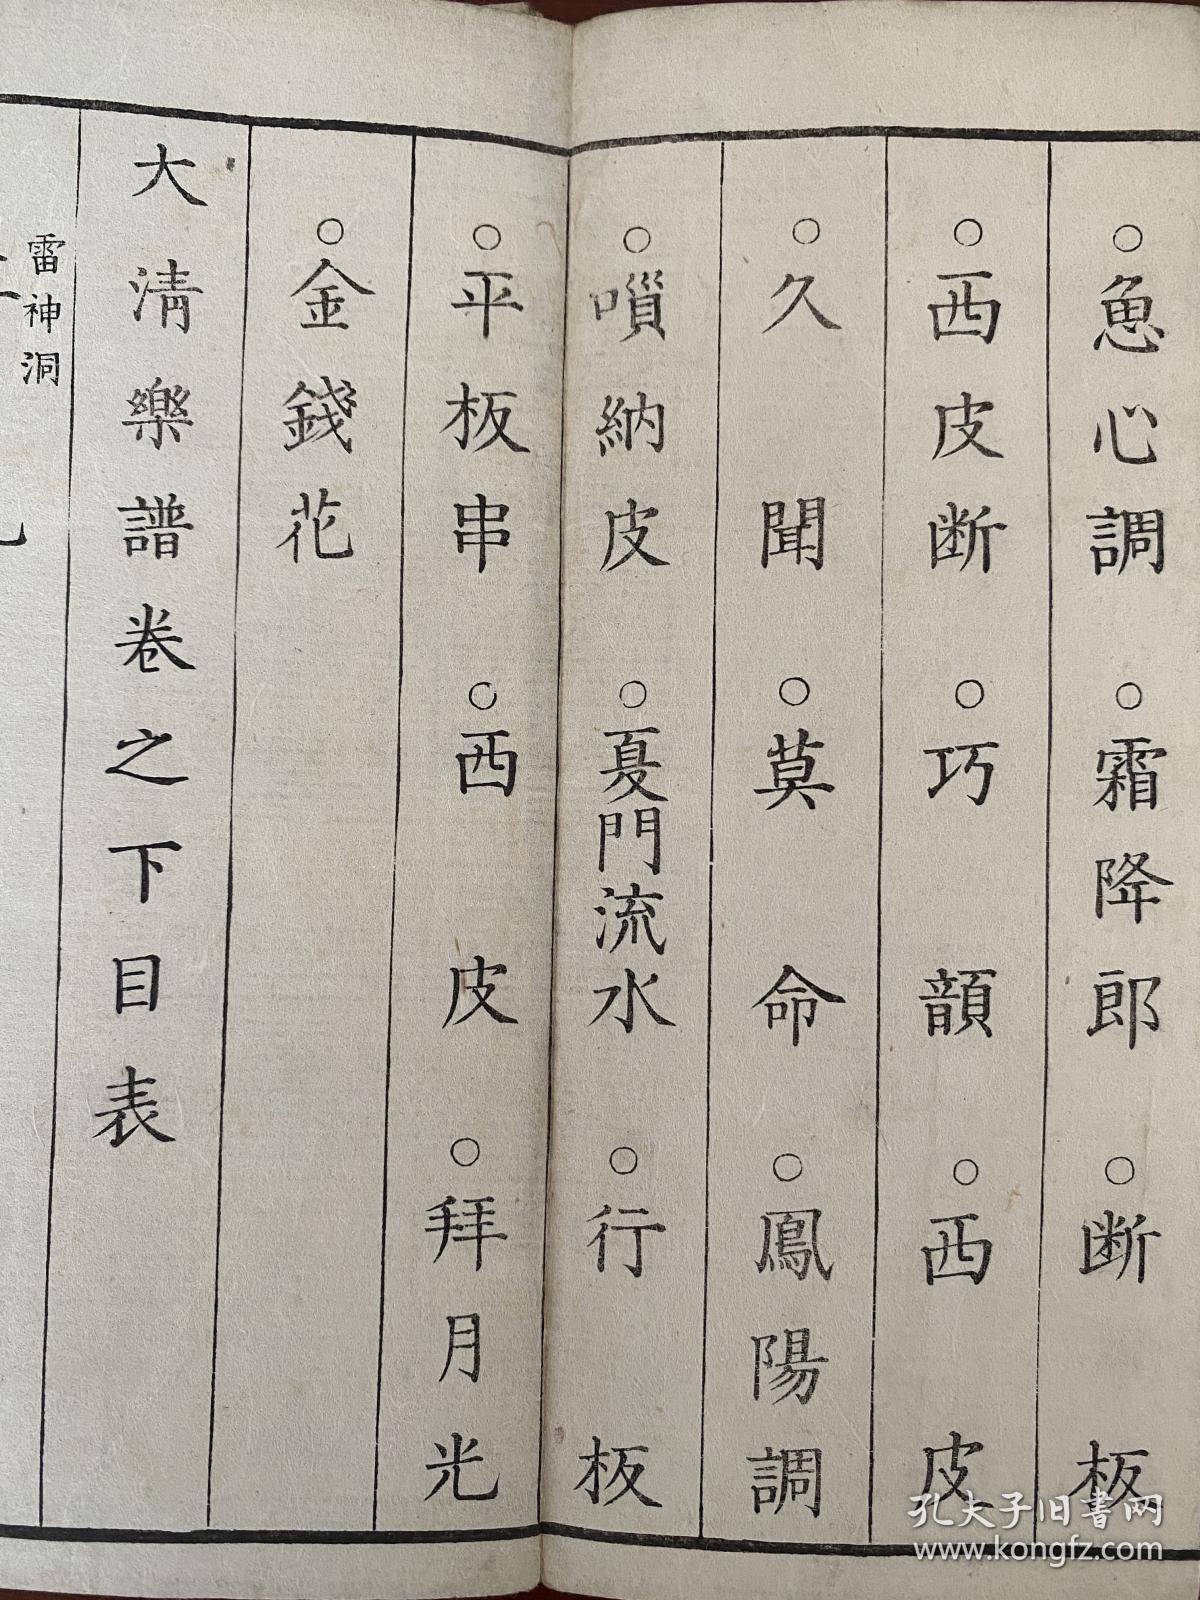 ○魚心調 ○霜降郎 ○断板
○西皮断 ○巧韻 ○西皮
○久聞 ○莫命 ○鳳陽調
○嗩納皮 ○夏門流水 ○行板
○平板串 ○西皮 ○拜月光
○金錢花
大清樂譜卷之下目表
雷神洞
孔夫子旧書网
www.kongfz.com